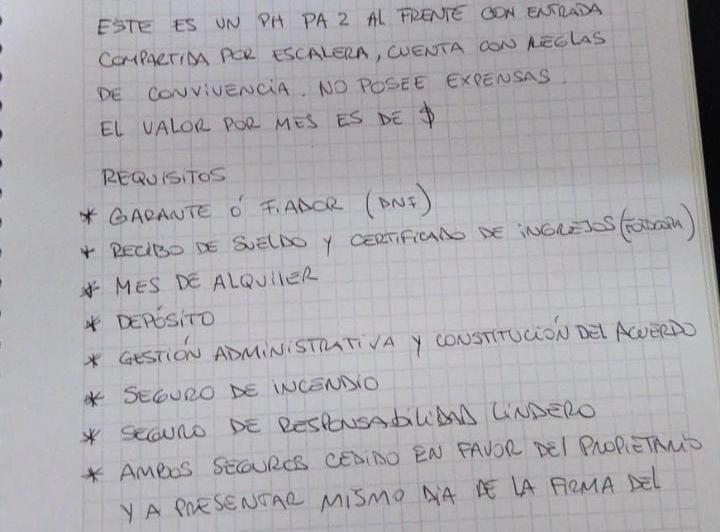 ESTE ES UN PH PA 2 AL FRENTE CON ENTRADA
COMPARTIDA POR ESCALERA, CUENTA CON REGLAS
DE CONVIVENCIA. NO POSEE EXPENSAS.
EL VALOR POR MES ES DE $
REQUISITOS
* GARANTE Ó FIADOR (DNI)
* RECIBO DE SUELDO Y CERTIFICADO DE INGRESOS (FOTOCOPIA)
* MES DE ALQUILER
* DEPÓSITO
* GESTIÓN ADMINISTRATIVA Y CONSTITUCIÓN DEL ACUERDO
* SEGURO DE INCENDIO
* SEGURO DE RESPONSABILIDAD LINDERO
* AMBOS SEGUROS CEDIDO EN FAVOR DEL PROPIETARIO
Y A PRESENTAR MISMO DIA DE LA FIRMA DEL